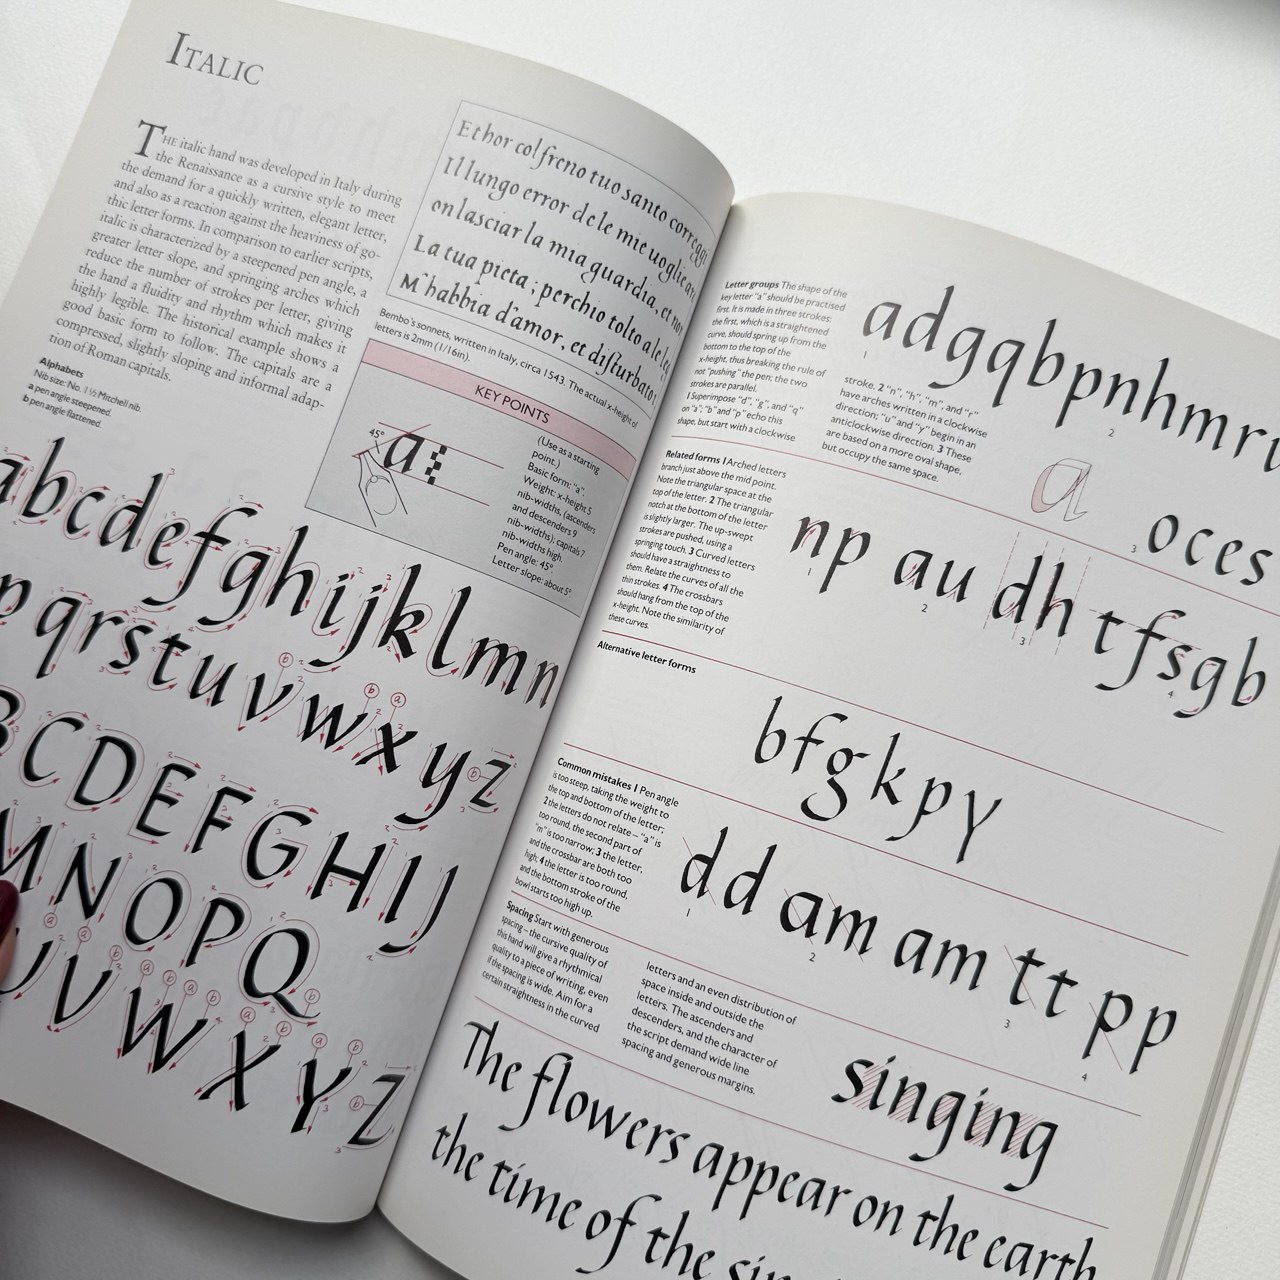 ITALIC
THE italic hand was developed in Italy during
the Renaissance as a cursive style to meet
the demand for a quickly written, elegant letter,
and also as a reaction against the heaviness of go-
thic letter forms. In comparison to earlier scripts,
italic is characterized by a steepened pen angle, a
greater letter slope, and springing arches which
reduce the number of strokes per letter, giving
the hand a fluidity and rhythm which makes it
highly legible. The historical example shows a
good basic form to follow. The capitals are a
compressed, slightly sloping and informal adap-
tion of Roman capitals.
Alphabets
Nib size: No. 1½ Mitchell nib.
a pen angle steepened.
b pen angle flattened.
Et hor col freno tuo santo corregg
Il lungo error de le mie uoglie
on lasciar la mia guardia, et
La tua pieta; perchio tolto a le
M'habbia d'amor, et disturbato
Bembo's sonnets, written in Italy, circa 1543. The actual x-height of
letters is 2mm (1/16in).
KEY POINTS
45°
a
(Use as a starting
point.)
Basic form: "a".
Weight: x-height 5
nib-widths, (ascenders
and descenders 9
nib-widths); capitals 7
nib-widths high.
Pen angle: 45°.
Letter slope: about 5°
abcdefghijklmn
pqrstuvwxyz
BCDEFGHIJ
MNOPQ
UVWXYZ
Letter groups The shape of the
key letter "a" should be practised
first. It is made in three strokes:
the first, which is a straightened
curve, should spring up from the
bottom to the top of the
x-height, thus breaking the rule of
not "pushing" the pen; the two
strokes are parallel.
1 Superimpose "d", "g", and "q"
on "a"; "b" and "p" echo this
shape, but start with a clockwise
stroke. 2 "n", "h", "m", and "r"
have arches written in a clockwise
direction; "u" and "y" begin in an
anticlockwise direction. 3 These
are based on a more oval shape,
but occupy the same space.
adgqbpnhmru
1
2
a
3 oces
Related forms 1 Arched letters
branch just above the mid point.
Note the triangular space at the
top of the letter. 2 The triangular
notch at the bottom of the letter
is slightly larger. The up-swept
strokes are pushed, using a
springing touch. 3 Curved letters
should have a straightness to
them. Relate the curves of all the
thin strokes. 4 The crossbars
should hang from the top of the
x-height. Note the similarity of
these curves.
np au dh tfsgb
1
2
3
4
Alternative letter forms
bfgkpy
Common mistakes 1 Pen angle
is too steep, taking the weight to
the top and bottom of the letter;
2 the letters do not relate – "a" is
too round, the second part of
"m" is too narrow; 3 the letter,
and the crossbar are both too
high; 4 the letter is too round,
and the bottom stroke of the
bowl starts too high up.
dd am am tt pp
1
2
3
4
Spacing Start with generous
spacing – the cursive quality of
this hand will give a rhythmical
quality to a piece of writing, even
if the spacing is wide. Aim for a
certain straightness in the curved
letters and an even distribution of
space inside and outside the
letters. The ascenders and
descenders, and the character of
the script demand wide line
spacing and generous margins.
singing
The flowers appear on the earth
the time of the